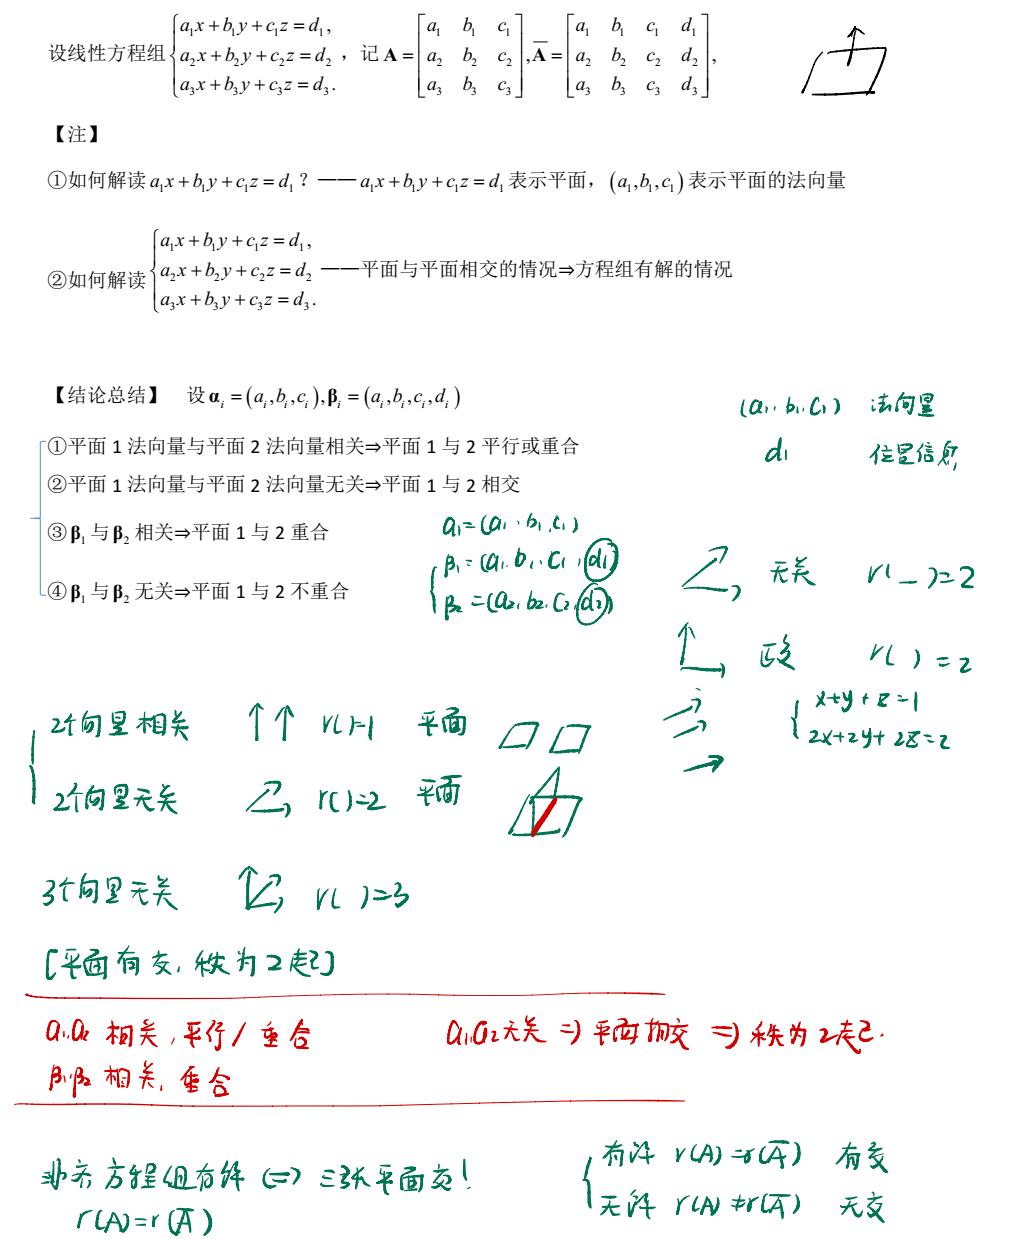 设线性方程组 { a₁x + b₁y + c₁z = d₁, a₂x + b₂y + c₂z = d₂ a₃x + b₃y + c₃z = d₃. ，记 A = [ a₁ b₁ c₁ ; a₂ b₂ c₂ ; a₃ b₃ c₃ ], A̅ = [ a₁ b₁ c₁ d₁ ; a₂ b₂ c₂ d₂ ; a₃ b₃ c₃ d₃ ],
【注】
①如何解读 a₁x + b₁y + c₁z = d₁？—— a₁x + b₁y + c₁z = d₁ 表示平面，(a₁,b₁,c₁) 表示平面的法向量
②如何解读 { a₁x + b₁y + c₁z = d₁, a₂x + b₂y + c₂z = d₂ a₃x + b₃y + c₃z = d₃. ——平面与平面相交的情况⇒方程组有解的情况
【结论总结】 设 αᵢ = (aᵢ,bᵢ,cᵢ), βᵢ = (aᵢ,bᵢ,cᵢ,dᵢ)
(a₁. b₁. c₁) 法向量
①平面 1 法向量与平面 2 法向量相关⇒平面 1 与 2 平行或重合
d₁ 位置信息
②平面 1 法向量与平面 2 法向量无关⇒平面 1 与 2 相交
③ β₁ 与 β₂ 相关⇒平面 1 与 2 重合
④ β₁ 与 β₂ 无关⇒平面 1 与 2 不重合
α₁=(a₁. b₁. c₁)
β₁=(a₁. b₁. c₁, d₁)
β₂=(a₂. b₂. c₂, d₂)
无关 r( )=2
正交 r( )=2
x+y+z=1
2x+2y+2z=2
2个向量相关 r( )=1 平面
2个向量无关 r( )=2 平面
3个向量无关 r( )=3
[平面有交, 秩为2起]
α₁,α₂ 相关, 平行/重合 α₁,α₂无关 ⇒ 平面相交 ⇒ 秩为2起.
β₁,β₂ 相关, 重合
非齐方程组有解 ⇔ 三张平面交!
r(A)=r(A̅)
有解 r(A)=r(A̅) 有交
无解 r(A)≠r(A̅) 无交